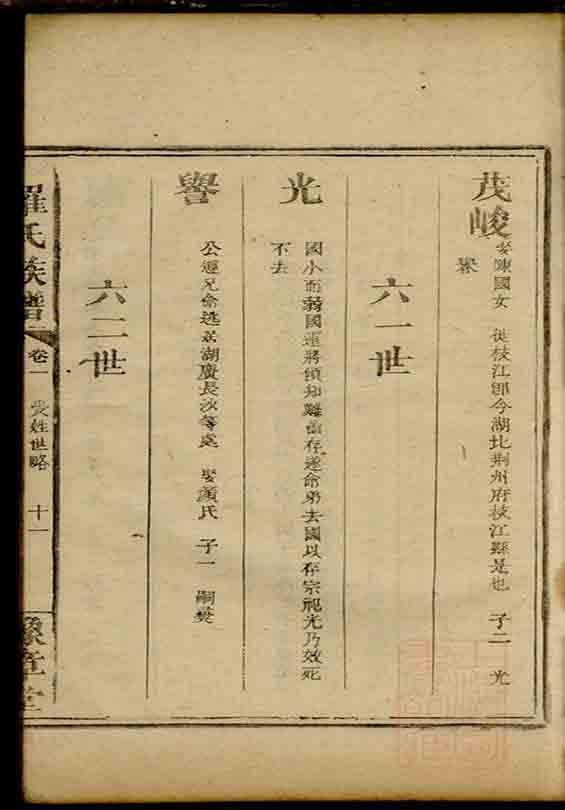 茂峻 娶陳國女 從枝江卽今湖北荆州府枝江縣是也 子二 光
譽
六一世
光 國小而弱國運將傾知難啚存遂命弟去國以存宗祀光乃效死
不去
譽 公遵兄命迯居湖廣長沙等處 娶顔氏 子一 嗣奘
六二世
羅氏族譜 卷一 受姓世略 十一 豫章堂